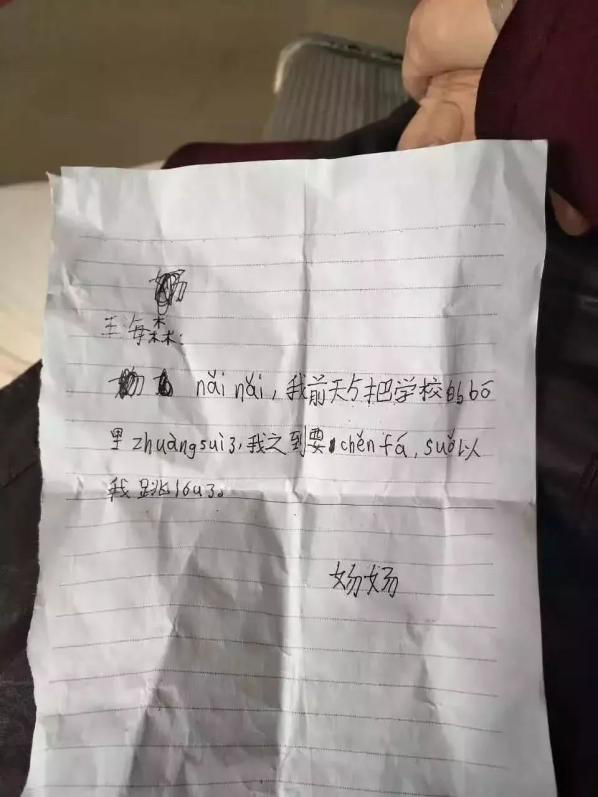 王每森:
nǎi nǎi, 我前天与把学校的bō
里zhuàng suì了, 我之到要chěn fá, suǒ以
我跳lóu了。
奶奶